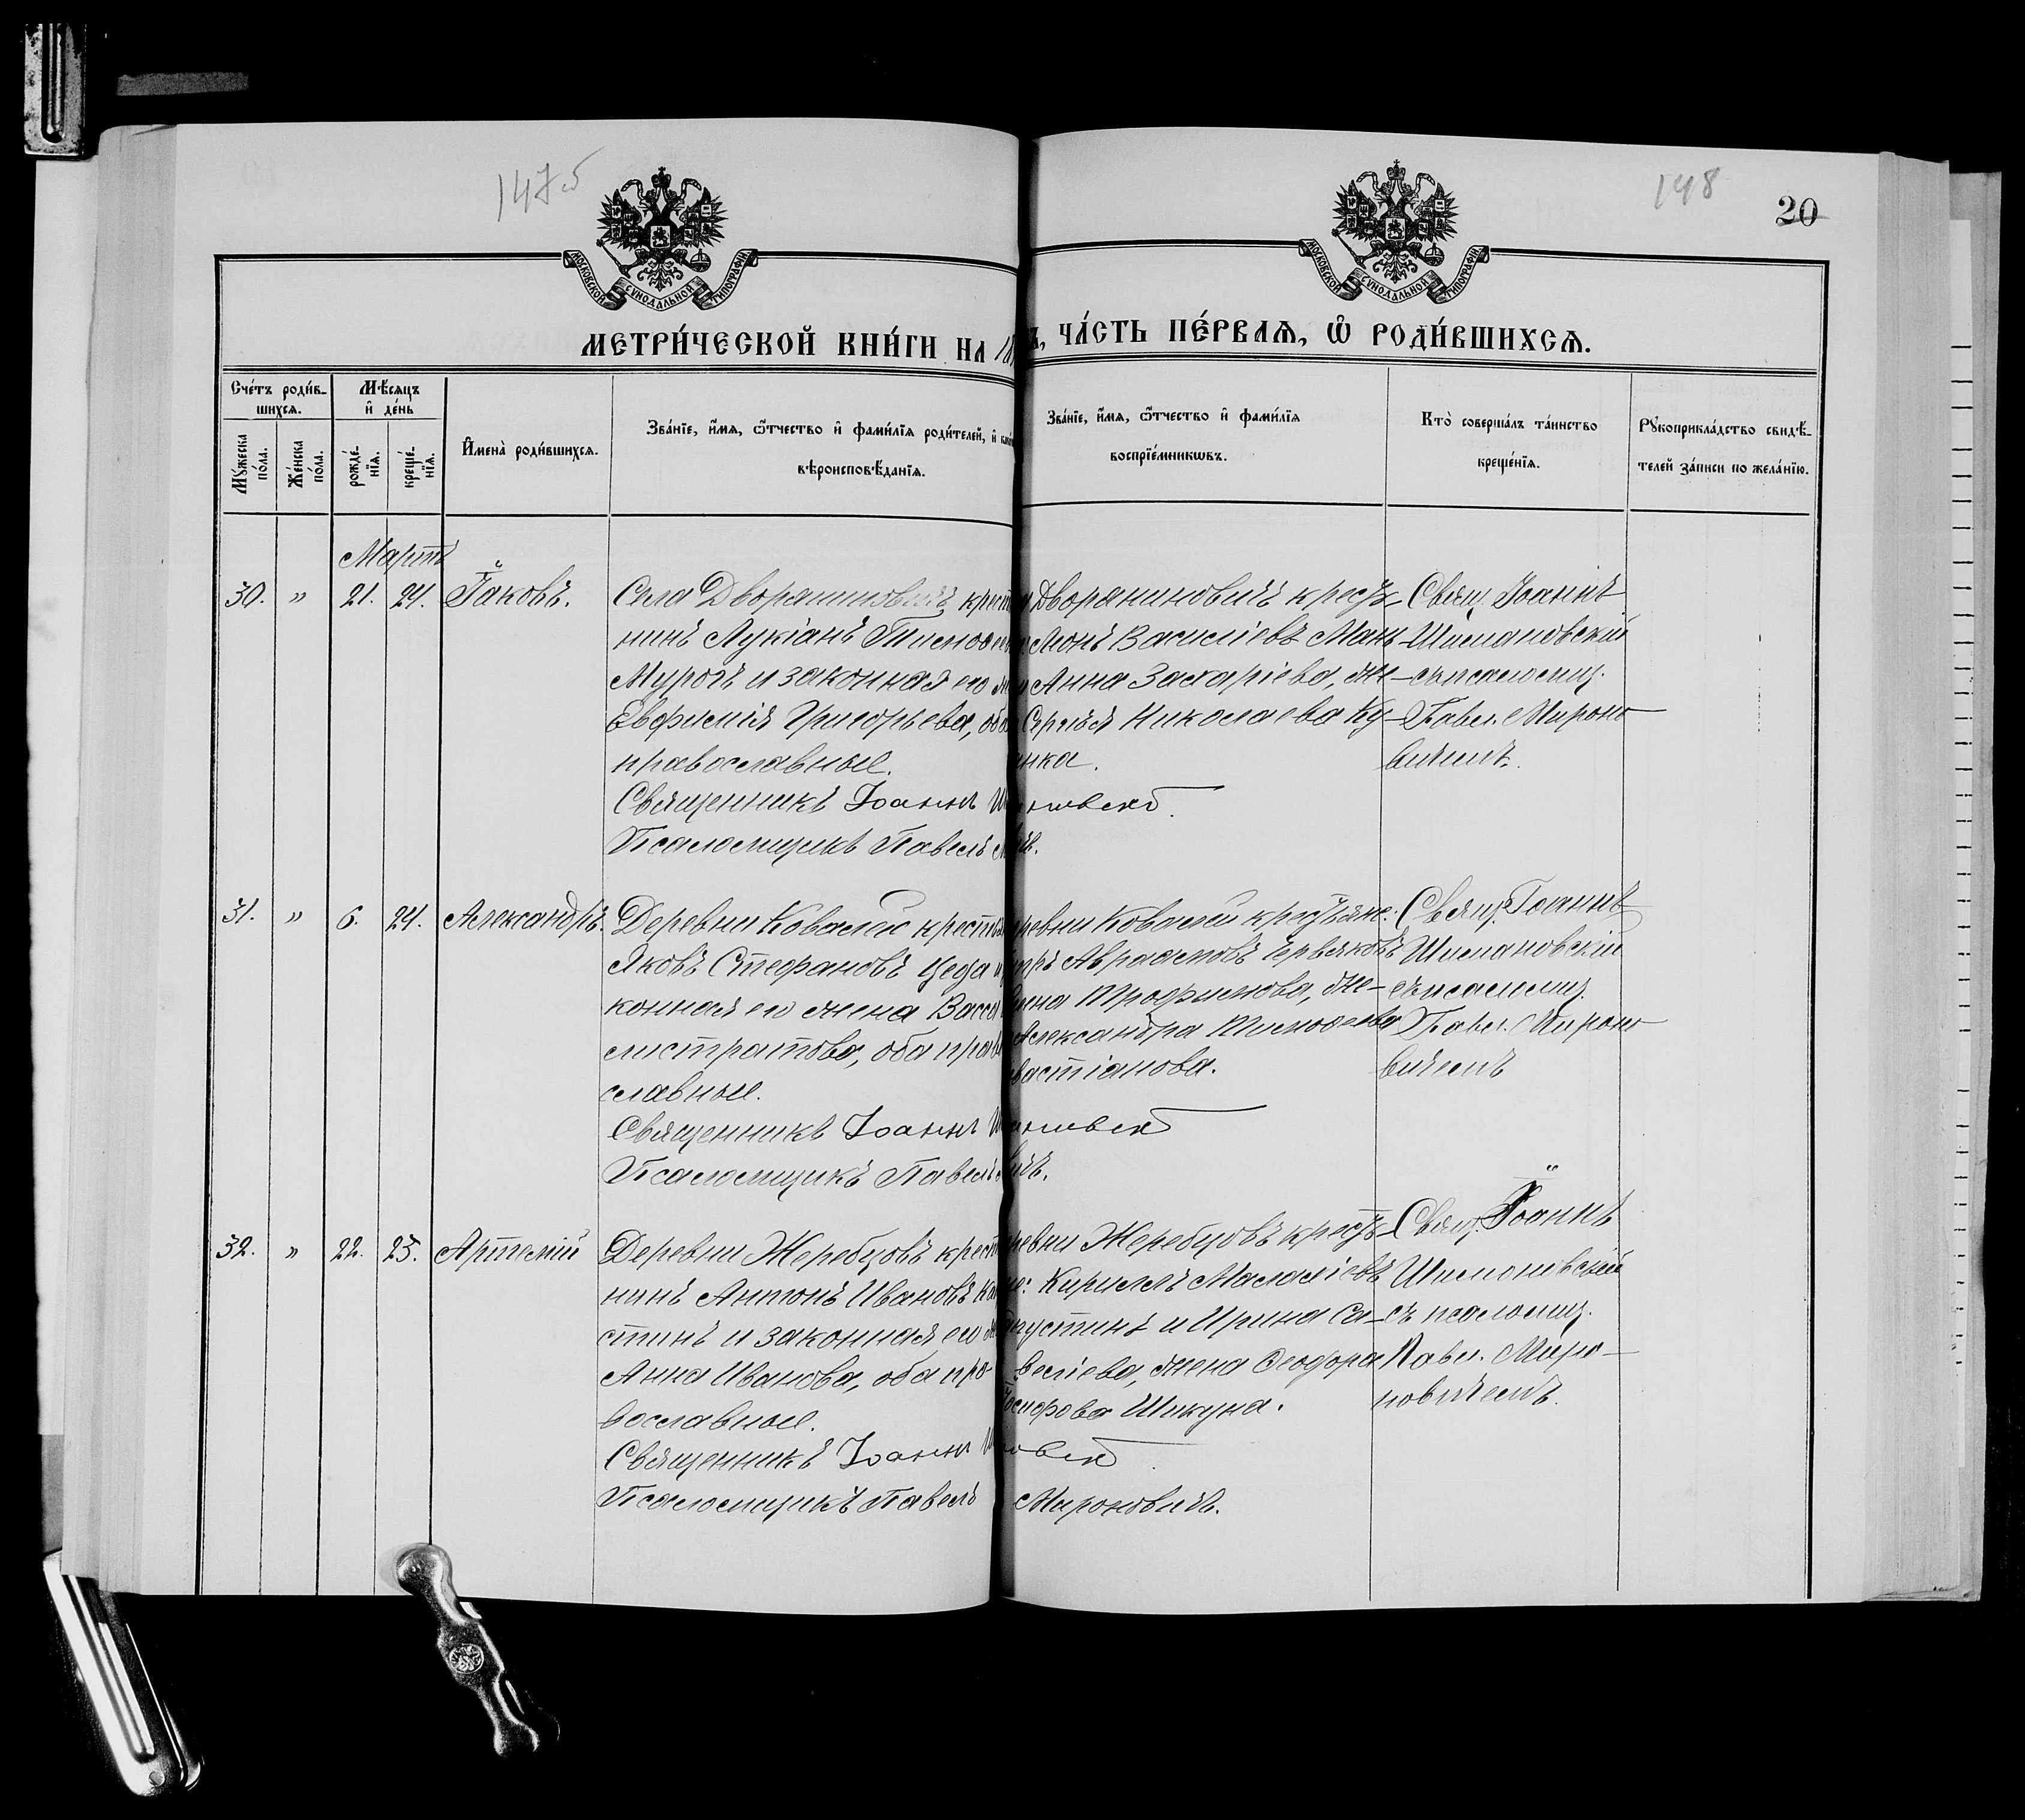 147об
148
20
МОСКОВСКОЙ СѴНОДАЛЬНОЙ ТИПОГРАФІИ
МОСКОВСКОЙ СѴНОДАЛЬНОЙ ТИПОГРАФІИ
МЕТРИ́ЧЕСКОЙ КНИ́ГИ НА 18
, ЧА́СТЬ ПЕ́РВАѦ, Ѡ҆ РОДИ́ВШИХСѦ.
Сче́тъ роди́в-
шихсѧ.
Мꙋ́жеска по́ла.
Же́нска по́ла.
Мѣ́сѧцъ
и҆ де́нь
рожде́-нїѧ.
креще́-нїѧ.
И҆мена̀ роди́вшихсѧ.
Зва́нїе, и҆́мѧ, ѻ҆́тчество и҆ фами́лїѧ роди́телей, и҆
вѣроисповѣ́данїѧ.
Зва́нїе, и҆́мѧ, ѻ҆́тчество и҆ фами́лїѧ
воспрїе́мникѡвъ.
Кто̀ соверша́лъ та́инство
креще́нїѧ.
Рꙋкоприкла́дство свидѣ́-
телей за́писи по жела́нїю.
Мартъ
30. " 21. 24. Іаковъ.
Села Дворяниновичъ крест
нинъ Лукіанъ Тимофеевъ
Мурогъ и законная его
Евфимія Григорьева, оба
православные.
Священникъ Іоаннъ
Псаломщикъ Павелъ
Дворяниновичъ крестъ-
Василіевъ Мань
Анна Захаріева, же-
Сергѣя Николаева Ку-
нка.
Свящ. Іоаннъ
Шимановскій
съ псаломщ.
Павл. Мироно-
вичемъ.
31. " 6. 24. Александръ.
Деревни Ковалей крестья
Яковъ Стефановъ Цеда и
конная его жена Васса
листратова, оба право
славные.
Священникъ Іоаннъ
Псаломщикъ Павелъ
ревни Ковалей крестьяне:
Авраамовъ Червяковъ
Трофимова, же-
Александра Тимофеева
вастіанова.
Свящ. Іоаннъ
Шимановскій
съ псаломщ.
Павл. Мироно-
вичемъ
32. " 22. 25. Артемій
Деревни Жеребцовъ крест
нинъ Антонъ Ивановъ Ка
стинъ и законная его
Анна Иванова, оба пра-
вославные.
Священникъ Іоаннъ
Псаломщикъ Павелъ Мироновичъ.
ревни Жеребцовъ крестъ-
не: Кириллъ Малахіевъ
пустинъ и Ирина Са-
веліева, жена Феодора
Іосифова Шикуна.
Свящ. Іоаннъ
Шимановскій
съ псаломщ.
Павл. Миро-
новичемъ.